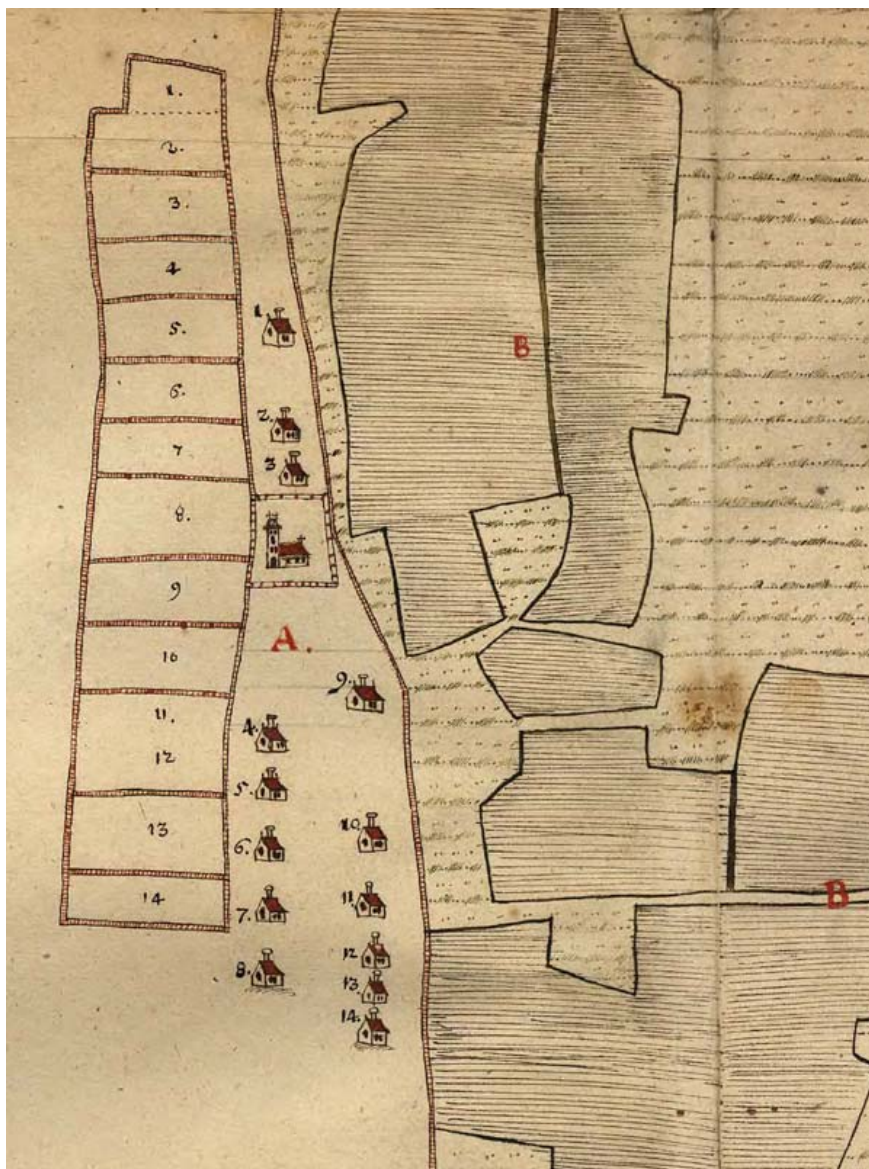 1.
2.
3.
4
5.
6.
7
8.
9
10
11.
12
13
14
1.
2.
3
A.
4.
5.
6.
7.
8.
9.
10
11.
12
13.
14.
B
B